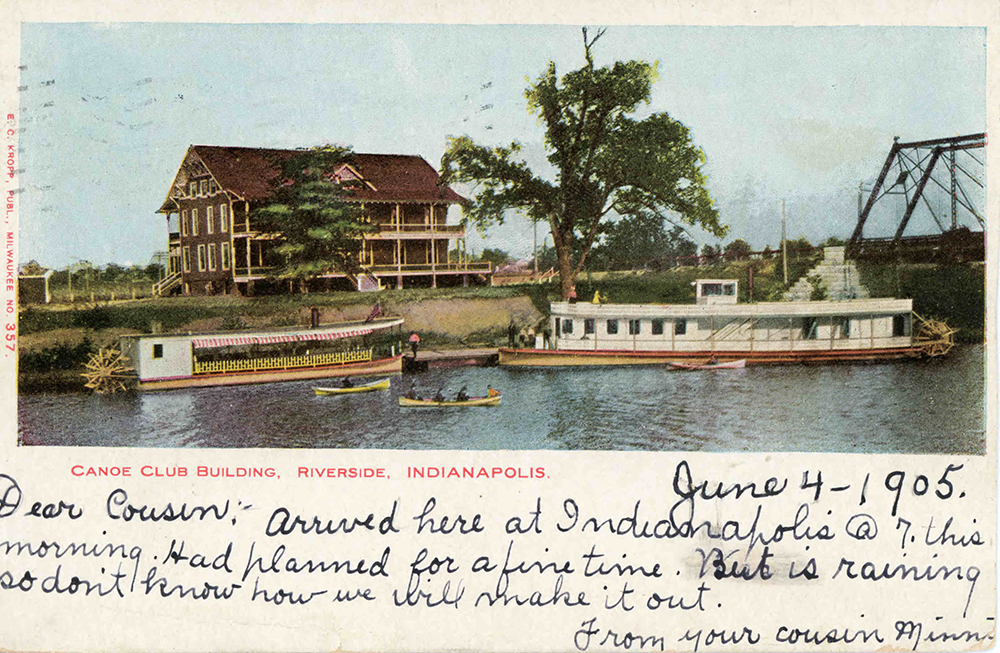 E. C. KROPP, PUBL., MILWAUKEE NO. 357.
CANOE CLUB BUILDING, RIVERSIDE, INDIANAPOLIS.
June 4-1905.
Dear Cousin;- Arrived here at Indianapolis @ 7. this
morning. Had planned for a fine time. But is raining
so don't know how we will make it out.
From your cousin Minni